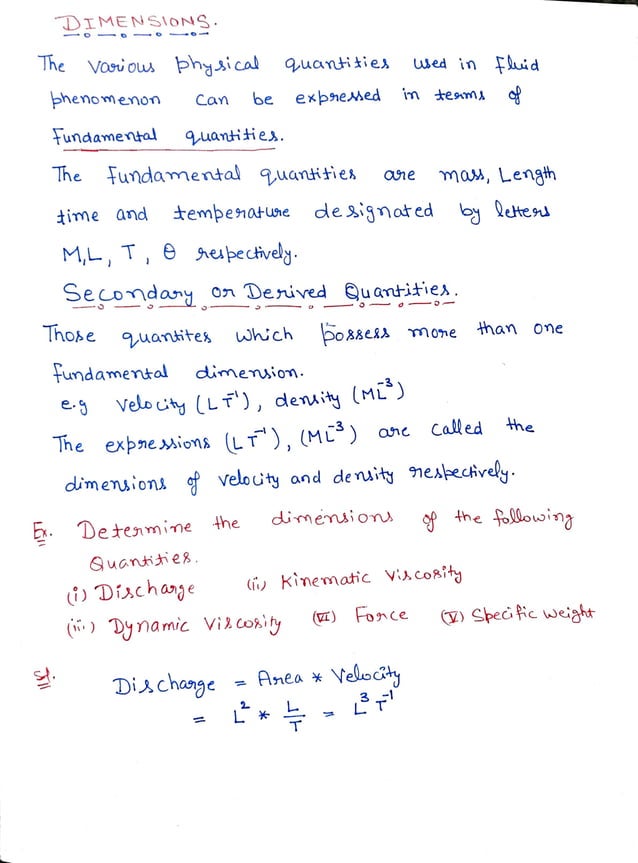 DIMENSIONS.
The various physical quantities used in fluid
phenomenon can be expressed in terms of
fundamental quantities.
The fundamental quantities are mass, Length
time and temperature designated by letters
M,L, T, θ respectively.
Secondary or Derived Quantities.
Those quantites which possess more than one
fundamental dimension.
e.g velocity (LT⁻¹), density (ML⁻³)
The expressions (LT⁻¹), (ML⁻³) are called the
dimensions of velocity and density respectively.
Ex. Determine the dimensions of the following
Quantities.
(i) Discharge (ii) Kinematic Viscosity
(iii) Dynamic Viscosity (VI) Force (V) Specific weight
Sol. Discharge = Area * Velocity
= L² * L/T = L³T⁻¹